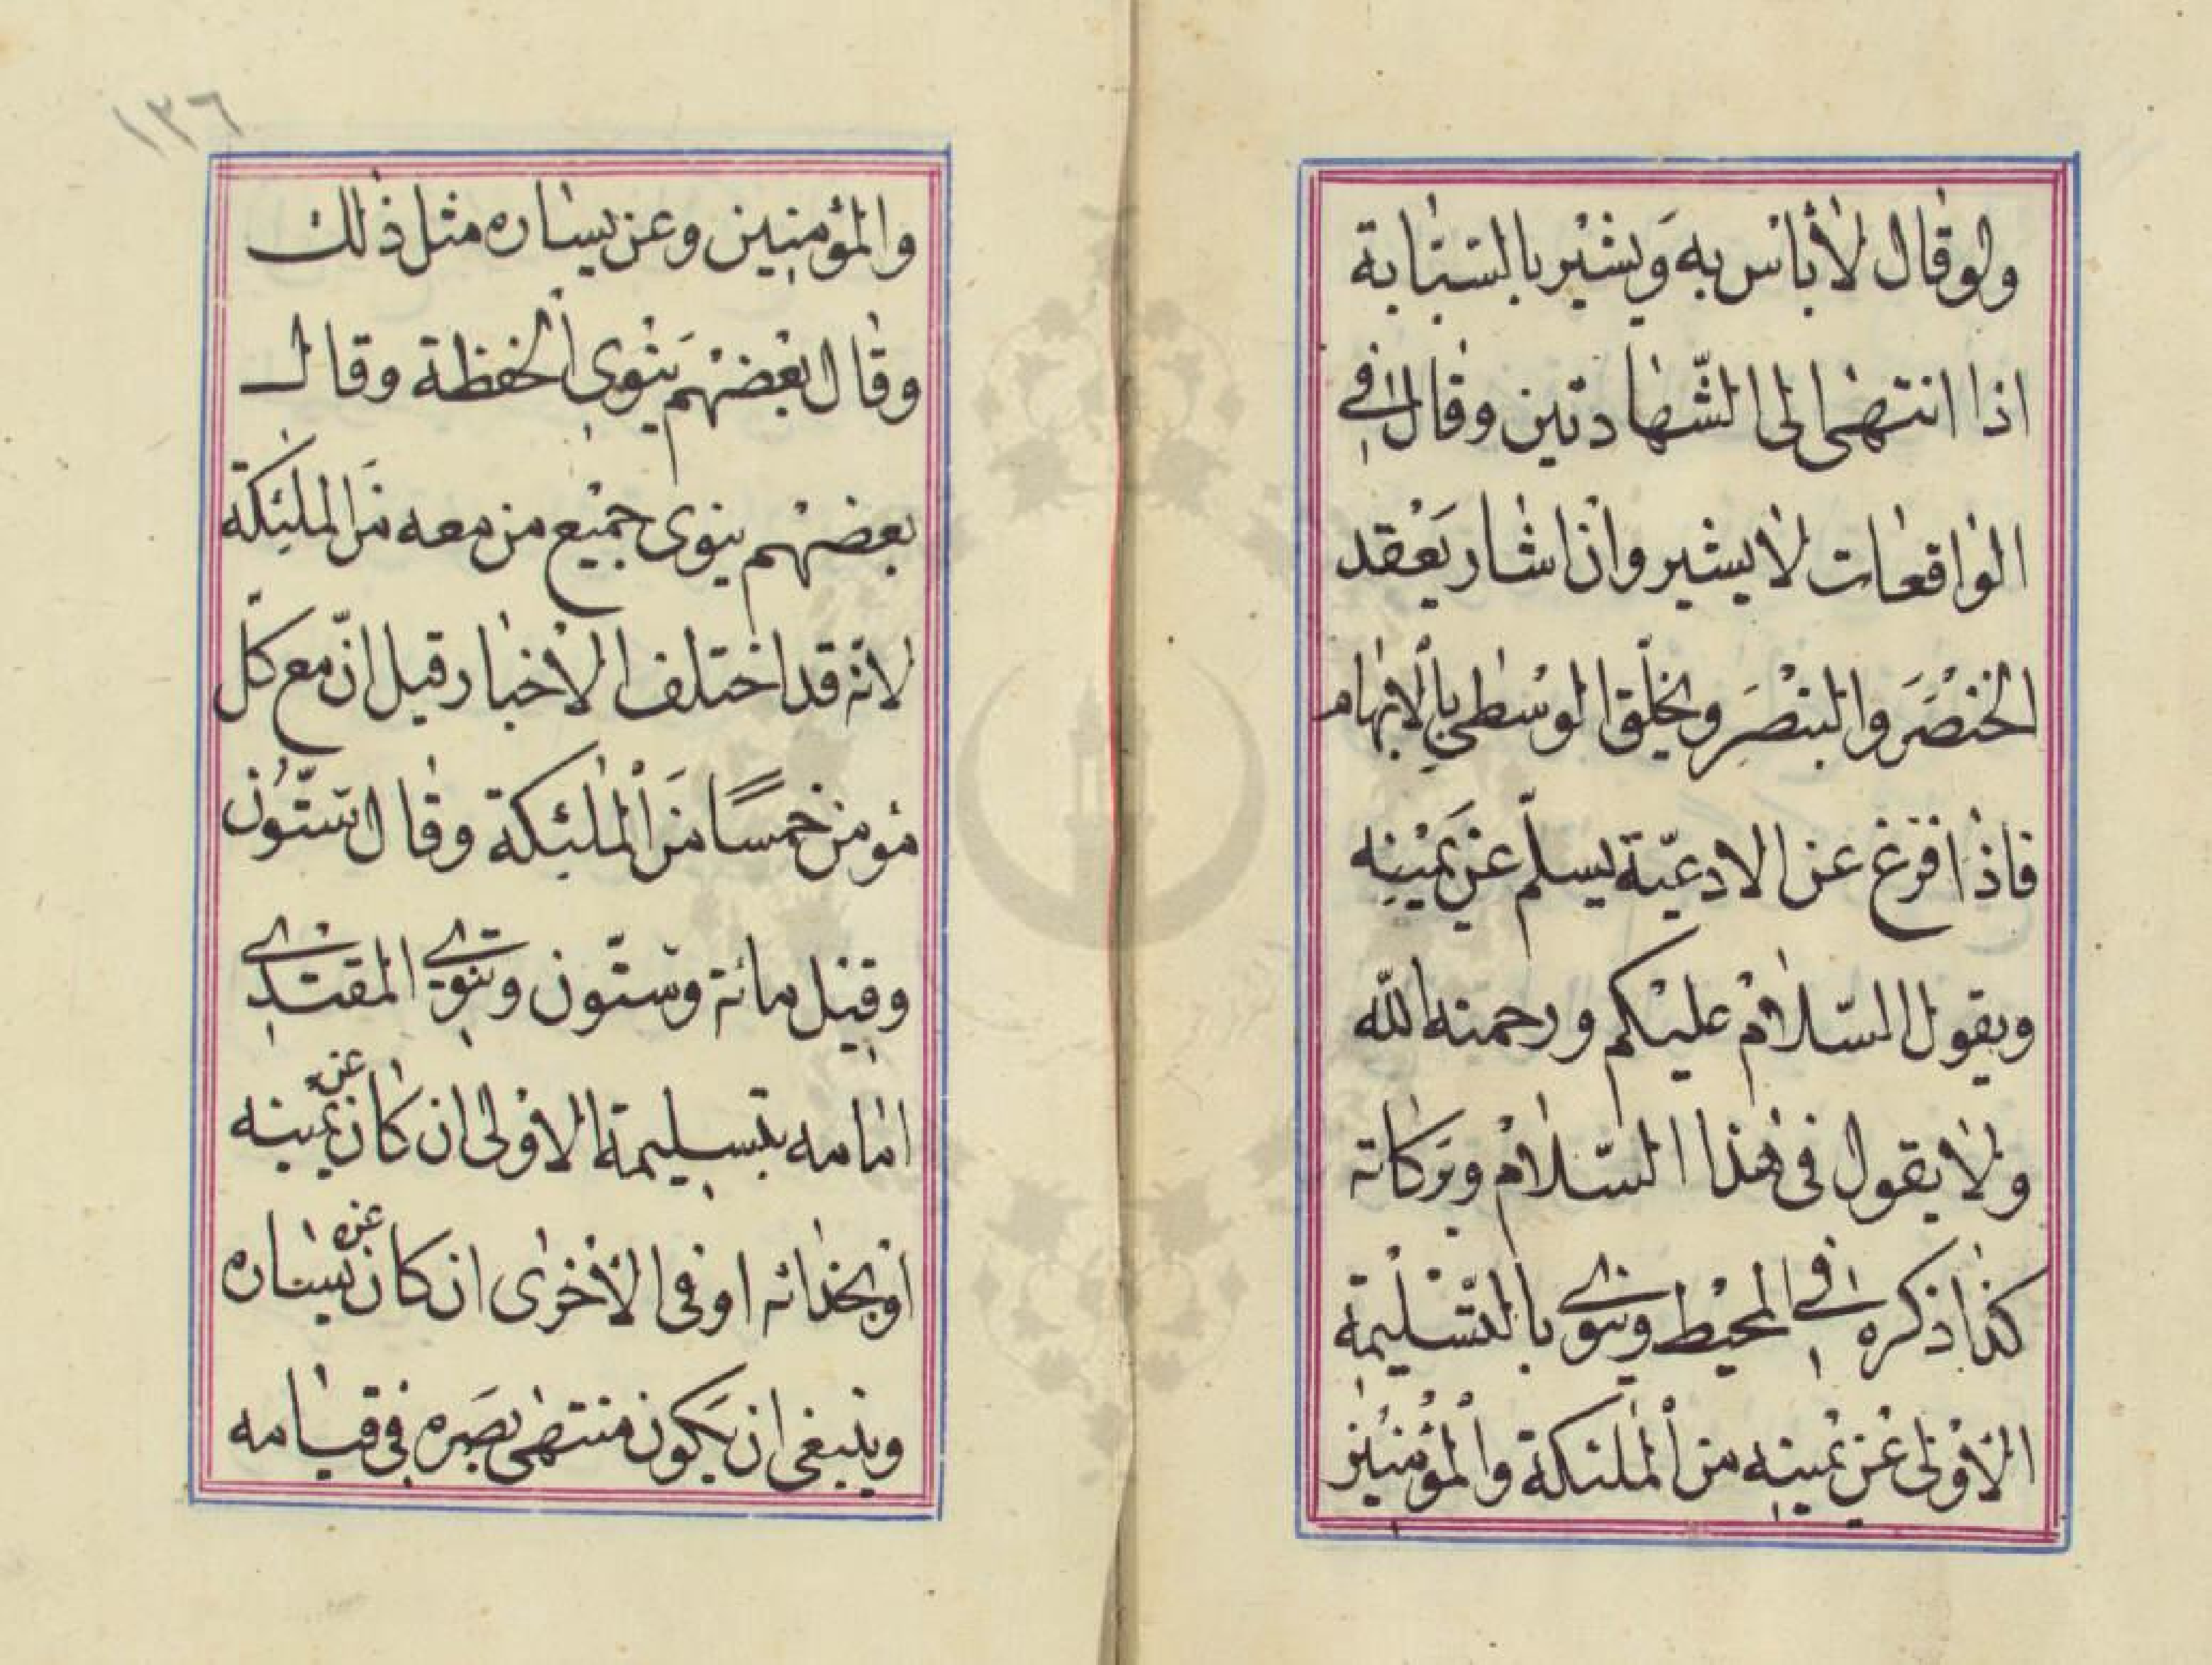 ولو قال لا بأس به ويشير بالسبّابة
اذا انتهى الى الشّهادتين وقال في
الواقعات لا يشير وان اشار يعقد
الخنصر والبنصر ويحلّق الوسطى بالابهام
فاذا فرغ عن الادعيّة يسلّم عن يمينه
ويقول السّلام عليكم ورحمة الله
ولا يقول في هذا السّلام وبركاته
كذا ذكره في المحيط وينوى بالتّسليمة
الاولى عن يمينه من الملئكة والمؤمنين
١٣٦
والمؤمنين وعن يساره مثل ذلك
وقال بعضهم ينوى الحفظة وقال
بعضهم ينوى جميع من معه من الملئكة
لانّه قد اختلف الاخبار قيل انّ مع كلّ
مؤمن خمسًا من الملئكة وقال ستّون
وقيل مائة وستّون وينوى المقتدى
امامه بتسليمة الاولى ان كان عن يمينه
او بحذائه او فى الاخرى ان كان عن يساره
وينبغى ان يكون منتهى بصره فى قيامه